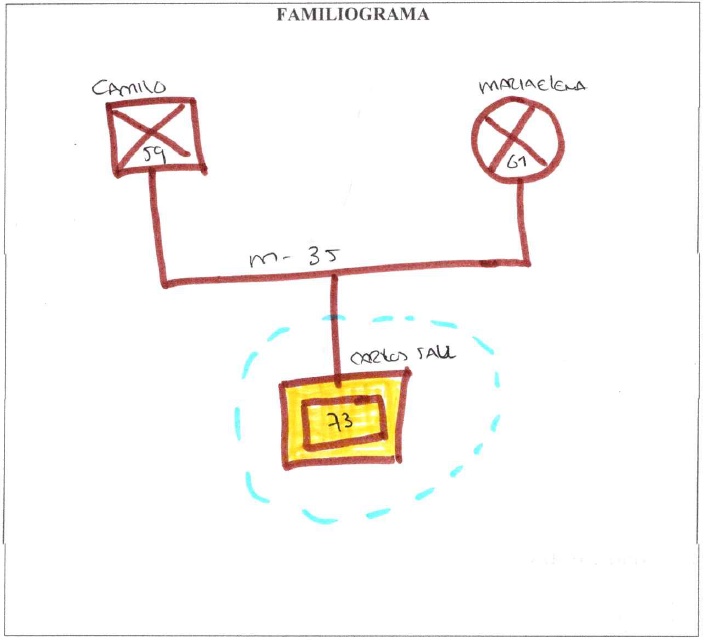 FAMILIOGRAMA
CAMILO
MARIAELENA
59
61
m - 35
CARLOS SAUL
73